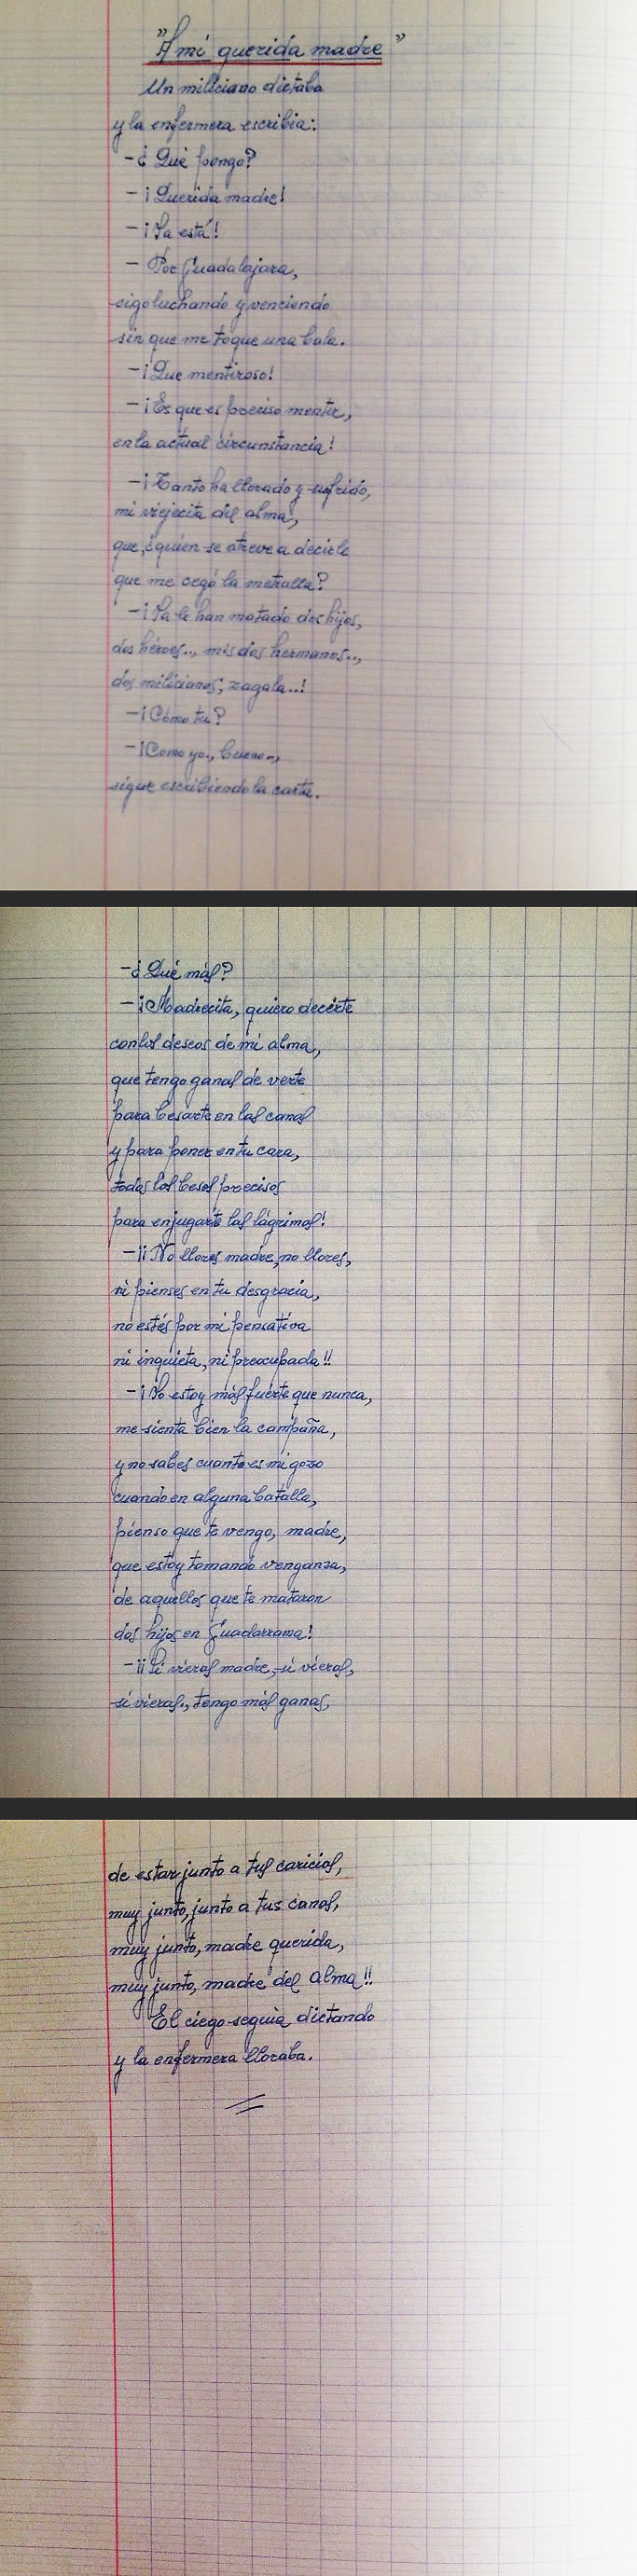 "A mi querida madre"
Un miliciano dictaba
y la enfermera escribia:
-¿ Qué pongo?
-¡ Querida madre!
-¡ Ya está!
- Por Guadalajara,
sigo luchando y venciendo
sin que me toque una bala.
-¡ Que mentiroso!
-¡ Es que es preciso mentir,
en la actual circunstancia!
-¡ Tanto ha llorado y sufrido,
mi viejecita del alma,
que, ¿quien se atreve a decirle
que me cegó la metralla?
-¡ Ya le han matado dos hijos,
dos héroes.., mis dos hermanos..,
dos milicianos; zagala..!
-¡ Cómo tu?
-¡Como yo., bueno..,
sigue escribiendo la carta.
-¿ Qué más?
-¡Madrecita, quiero decirte
con los deseos de mi alma,
que tengo ganas de verte
para besarte en las canas
y para poner en tu cara,
todos los besos precisos
para enjugarte las lágrimas!
-¡¡ No llores madre, no llores,
ni pienses en tu desgracia,
no estés por mi pensativa
ni inquieta, ni preocupada!!
-¡ Yo estoy más fuerte que nunca,
me sienta bien la campaña,
y no sabes cuanto es mi gozo
cuando en alguna batalla,
pienso que te vengo, madre,
que estoy tomando venganza,
de aquellos que te mataron
dos hijos en Guadarrama!
-¡¡ Si vieras madre, si vieras,
si vieras., tengo más ganas,
de estar junto a tus caricias,
muy junto, junto a tus canas,
muy junto, madre querida,
muy junto, madre del alma!!
El ciego seguía dictando
y la enfermera lloraba.